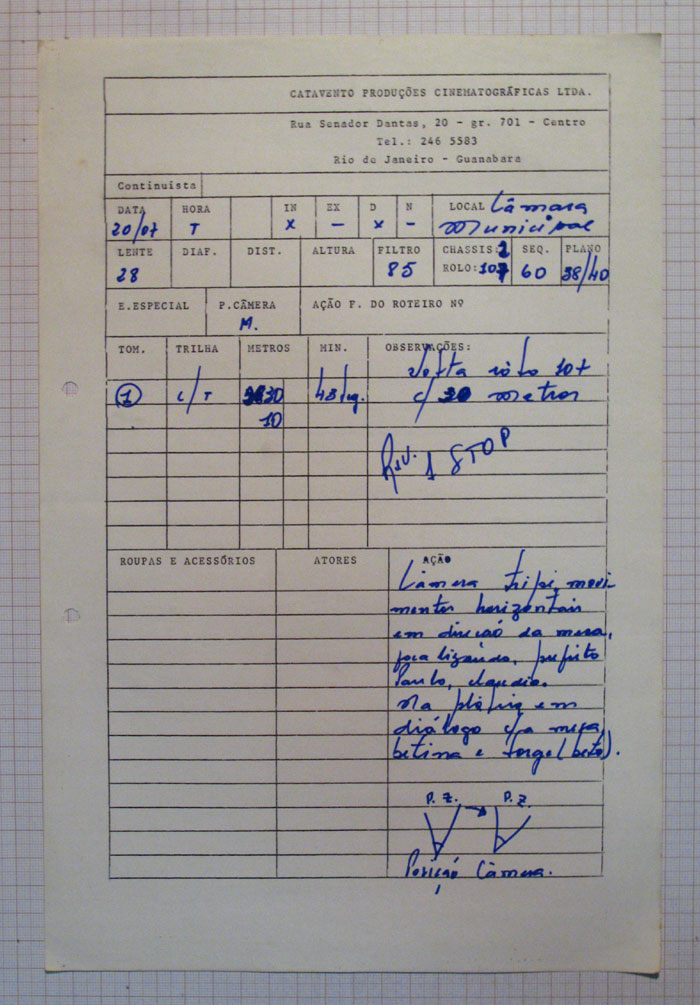 CATAVENTO PRODUÇÕES CINEMATOGRÁFICAS LTDA.
Rua Senador Dantas, 20 - gr. 701 - Centro
Tel.: 246 5583
Rio de Janeiro - Guanabara
Continuista
DATA HORA IN EX D N LOCAL Câmara
20/07 T x - x - Municipal
LENTE DIAF. DIST. ALTURA FILTRO CHASSIS: 1 SEQ. PLANO
28 85 ROLO: 107 60 38/40
E.ESPECIAL P.CÂMERA AÇÃO F. DO ROTEIRO Nº
M.
TOM. TRILHA METROS MIN. OBSERVAÇÕES:
Volta rolo 107
1 c/T 30 43 seg. c/ 30 metros
10
1 STOP
ROUPAS E ACESSÓRIOS ATORES AÇÃO
Câmera tripé, movi
mentos horizontais
em direção da mesa,
focalizando, prefeito
Paulo, claudio.
Na platéia em
diálogo c/a mesa,
betina e Jorge (beto).
P.Z. P.Z.
Posição Câmera.